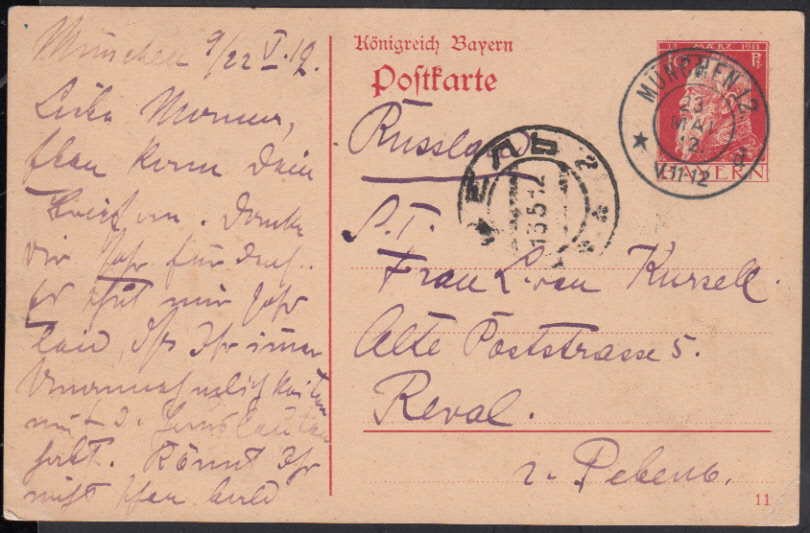 München 9/22 V. 12.
Liebe Mornun,
kam Dein
Brief an. Danke
Dir sehr für
thut mir sehr
leid, Ihr immer
Unannehmlichkeiten
mit d. Hausleuten
habt. Könnt Ihr
nicht bald
Königreich Bayern
Postkarte
Russland
S. T.
Frau L. von Kursell.
Alte Poststrasse 5.
Reval.
г. Ревель.
11
12. MÄRZ 1911
BAYERN
MÜNCHEN 12.
23
MAI
12
V. 11-12
РЕВЕЛЬ
13 5 12
2